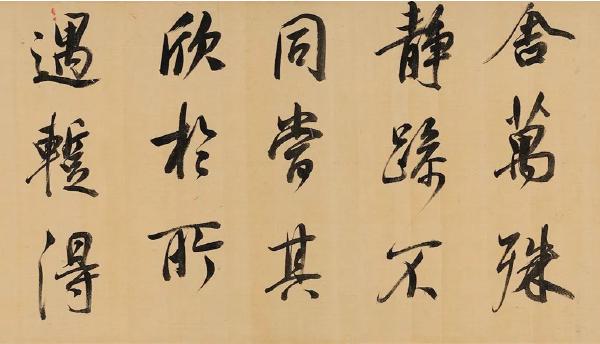 舍萬殊
靜躁不
同當其
欣於所
遇蹔得